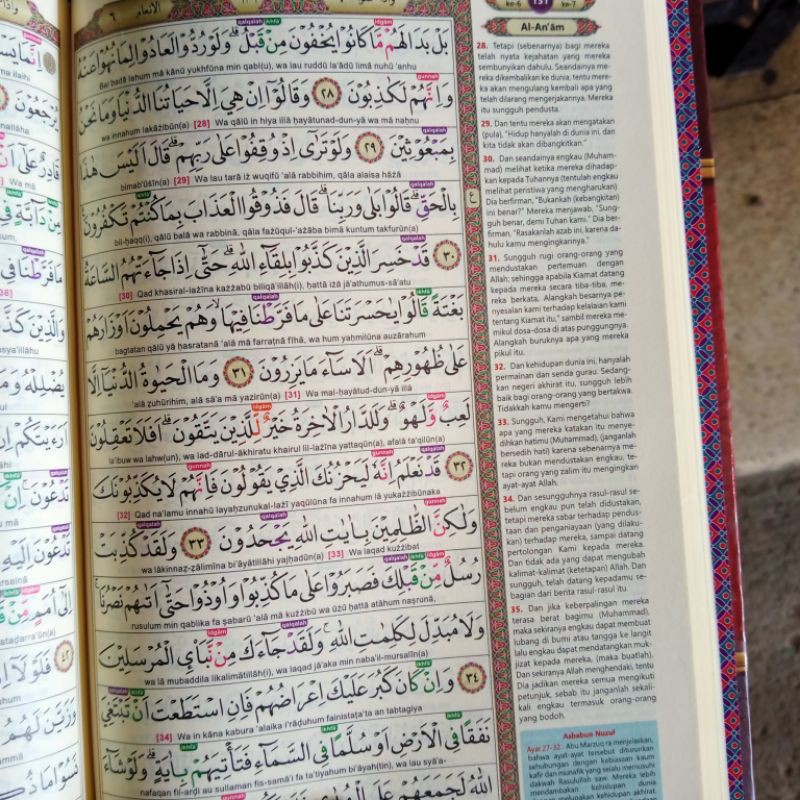 الأنعام ٦
بَلْ بَدَا لَهُمْ مَّا كَانُوْا يُخْفُوْنَ مِنْ قَبْلُ ۗ وَلَوْ رُدُّوْا لَعَادُوْا لِمَا نُهُوْا عَنْهُ
Bal badā lahum mā kānū yukhfūna min qabl(u), wa lau ruddū la'ādū limā nuhū 'anhu
وَاِنَّهُمْ لَكٰذِبُوْنَ ٢٨ وَقَالُوْٓا اِنْ هِيَ اِلَّا حَيَاتُنَا الدُّنْيَا وَمَا نَحْنُ
wa innahum lakāżibūn(a) [28] Wa qālū in hiya illā ḥayātunad-dun-yā wa mā naḥnu
بِمَبْعُوْثِيْنَ ٢٩ وَلَوْ تَرٰٓى اِذْ وُقِفُوْا عَلٰى رَبِّهِمْ ۗ قَالَ اَلَيْسَ هٰذَا
bimab'ūṡīn(a) [29] Wa lau tarā iż wuqifū 'alā rabbihim, qāla alaisa hāżā
بِالْحَقِّ ۗ قَالُوْا بَلٰى وَرَبِّنَا ۗ قَالَ فَذُوْقُوا الْعَذَابَ بِمَا كُنْتُمْ تَكْفُرُوْنَ
bil-ḥaqq(i), qālū balā wa rabbinā, qāla fażūqul-'ażāba bimā kuntum takfurūn(a)
٣٠ قَدْ خَسِرَ الَّذِيْنَ كَذَّبُوْا بِلِقَاۤءِ اللّٰهِ ۗ حَتّٰٓى اِذَا جَاۤءَتْهُمُ السَّاعَةُ
[30] Qad khasiral-lażīna każżabū biliqā'illāh(i), ḥattā iżā jā'athumus-sā'atu
بَغْتَةً قَالُوْا يٰحَسْرَتَنَا عَلٰى مَا فَرَّطْنَا فِيْهَا ۙ وَهُمْ يَحْمِلُوْنَ اَوْزَارَهُمْ
bagtatan qālū yā ḥasratanā 'alā mā farraṭnā fīhā, wa hum yaḥmilūna auzārahum
عَلٰى ظُهُوْرِهِمْ ۗ اَلَا سَاۤءَ مَا يَزِرُوْنَ ٣١ وَمَا الْحَيٰوةُ الدُّنْيَآ اِلَّا
'alā ẓuhūrihim, alā sā'a mā yazirūn(a) [31] Wa mal-ḥayātud-dun-yā illā
لَعِبٌ وَّلَهْوٌ ۗ وَلَلدَّارُ الْاٰخِرَةُ خَيْرٌ لِّلَّذِيْنَ يَتَّقُوْنَ ۗ اَفَلَا تَعْقِلُوْنَ
la'ibuw wa lahw(un), wa lad-dārul-ākhiratu khairul lil-lażīna yattaqūn(a), afalā ta'qilūn(a)
٣٢ قَدْ نَعْلَمُ اِنَّهٗ لَيَحْزُنُكَ الَّذِيْ يَقُوْلُوْنَ فَاِنَّهُمْ لَا يُكَذِّبُوْنَكَ
[32] Qad na'lamu innahū layaḥzunukal-lażī yaqūlūna fa innahum lā yukażżibūnaka
وَلٰكِنَّ الظّٰلِمِيْنَ بِاٰيٰتِ اللّٰهِ يَجْحَدُوْنَ ٣٣ وَلَقَدْ كُذِّبَتْ
wa lākinnaẓ-ẓālimīna bi'āyātillāhi yajḥadūn(a) [33] Wa laqad kużżibat
رُسُلٌ مِّنْ قَبْلِكَ فَصَبَرُوْا عَلٰى مَا كُذِّبُوْا وَاُوْذُوْا حَتّٰٓى اَتٰىهُمْ نَصْرُنَا
rusulum min qablika fa ṣabarū 'alā mā kużżibū wa ūżū ḥattā atāhum naṣrunā,
وَلَا مُبَدِّلَ لِكَلِمٰتِ اللّٰهِ ۚ وَلَقَدْ جَاۤءَكَ مِنْ نَّبَإِ۟ى الْمُرْسَلِيْنَ
wa lā mubaddila likalimātillāh(i), wa laqad jā'aka min naba'il-mursalīn(a)
٣٤ وَاِنْ كَانَ كَبُرَ عَلَيْكَ اِعْرَاضُهُمْ فَاِنِ اسْتَطَعْتَ اَنْ تَبْتَغِيَ
[34] Wa in kāna kabura 'alaika i'rāḍuhum fainistaṭa'ta an tabtagiya
نَفَقًا فِى الْاَرْضِ اَوْ سُلَّمًا فِى السَّمَاۤءِ فَتَأْتِيَهُمْ بِاٰيَةٍ ۗ وَلَوْ شَاۤءَ
nafaqan fil-arḍi au sullaman fis-samā'i fa ta'tiyahum bi'āyah(tin), wa lau syā'a-
اللّٰهُ لَجَمَعَهُمْ عَلَى
ke-6 131 ke-7
Al-An'ām
28. Tetapi (sebenarnya) bagi mereka
telah nyata kejahatan yang mereka
sembunyikan dahulu. Seandainya me-
reka dikembalikan ke dunia, tentu mere-
ka akan mengulang kembali apa yang
telah dilarang mengerjakannya. Mereka
itu sungguh pendusta.
29. Dan tentu mereka akan mengatakan
(pula), "Hidup hanyalah di dunia ini, dan
kita tidak akan dibangkitkan."
30. Dan seandainya engkau (Muham-
mad) melihat ketika mereka dihadap-
kan kepada Tuhannya (tentulah engkau
melihat peristiwa yang mengharukan)
Dia berfirman, "Bukankah (kebangkitan)
ini benar?" Mereka menjawab, "Sung-
guh benar, demi Tuhan kami." Dia ber-
firman, "Rasakanlah azab ini, karena da-
hulu kamu mengingkarinya."
31. Sungguh rugi orang-orang yang
mendustakan pertemuan dengan
Allah; sehingga apabila Kiamat datang
kepada mereka secara tiba-tiba, me-
reka berkata, Alangkah besarnya pe-
nyesalan kami terhadap kelalaian kami
tentang Kiamat itu," sambil mereka me-
mikul dosa-dosa di atas punggungnya.
Alangkah buruknya apa yang mereka
pikul itu.
32. Dan kehidupan dunia ini, hanyalah
permainan dan senda gurau. Sedang-
kan negeri akhirat itu, sungguh lebih
baik bagi orang-orang yang bertakwa.
Tidakkah kamu mengerti?
33. Sungguh, Kami mengetahui bahwa
apa yang mereka katakan itu menye-
dihkan hatimu (Muhammad), (janganlah
bersedih hati) karena sebenarnya me-
reka bukan mendustakan engkau, te-
tapi orang yang zalim itu mengingkari
ayat-ayat Allah.
34. Dan sesungguhnya rasul-rasul se-
belum engkau pun telah didustakan,
tetapi mereka sabar terhadap pendus-
taan dan penganiayaan (yang dilaku-
kan) terhadap mereka, sampai datang
pertolongan Kami kepada mereka.
Dan tidak ada yang dapat mengubah
kalimat-kalimat (ketetapan) Allah. Dan
sungguh, telah datang kepadamu se-
bagian dari berita rasul-rasul itu.
35. Dan jika keberpalingan mereka
terasa berat bagimu (Muhammad),
maka sekiranya engkau dapat membuat
lubang di bumi atau tangga ke langit
lalu engkau dapat mendatangkan muk-
jizat kepada mereka, (maka buatlah).
Dan sekiranya Allah menghendaki, tentu
Dia jadikan mereka semua mengikuti
petunjuk, sebab itu janganlah sekali-
kali engkau termasuk orang-orang
yang bodoh.
Asbabun Nuzul
Ayat 27-32 Abu Marzuq ra menjelaskan,
bahwa ayat-ayat tersebut diturunkan
sehubungan dengan kebiasaan kaum
kafir dan munafik yang selalu memusuhi
dakwah Rasulullah saw. Mereka lebih
mendambakan kehidupan dunia